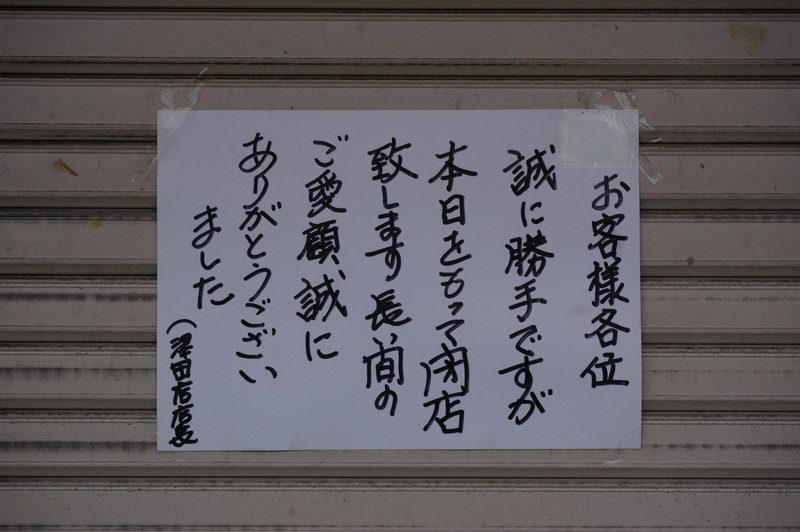 お客様各位
誠に勝手ですが
本日をもって閉店
致します長い間の
ご愛顧誠に
ありがとうござい
ました
(澤田店店長